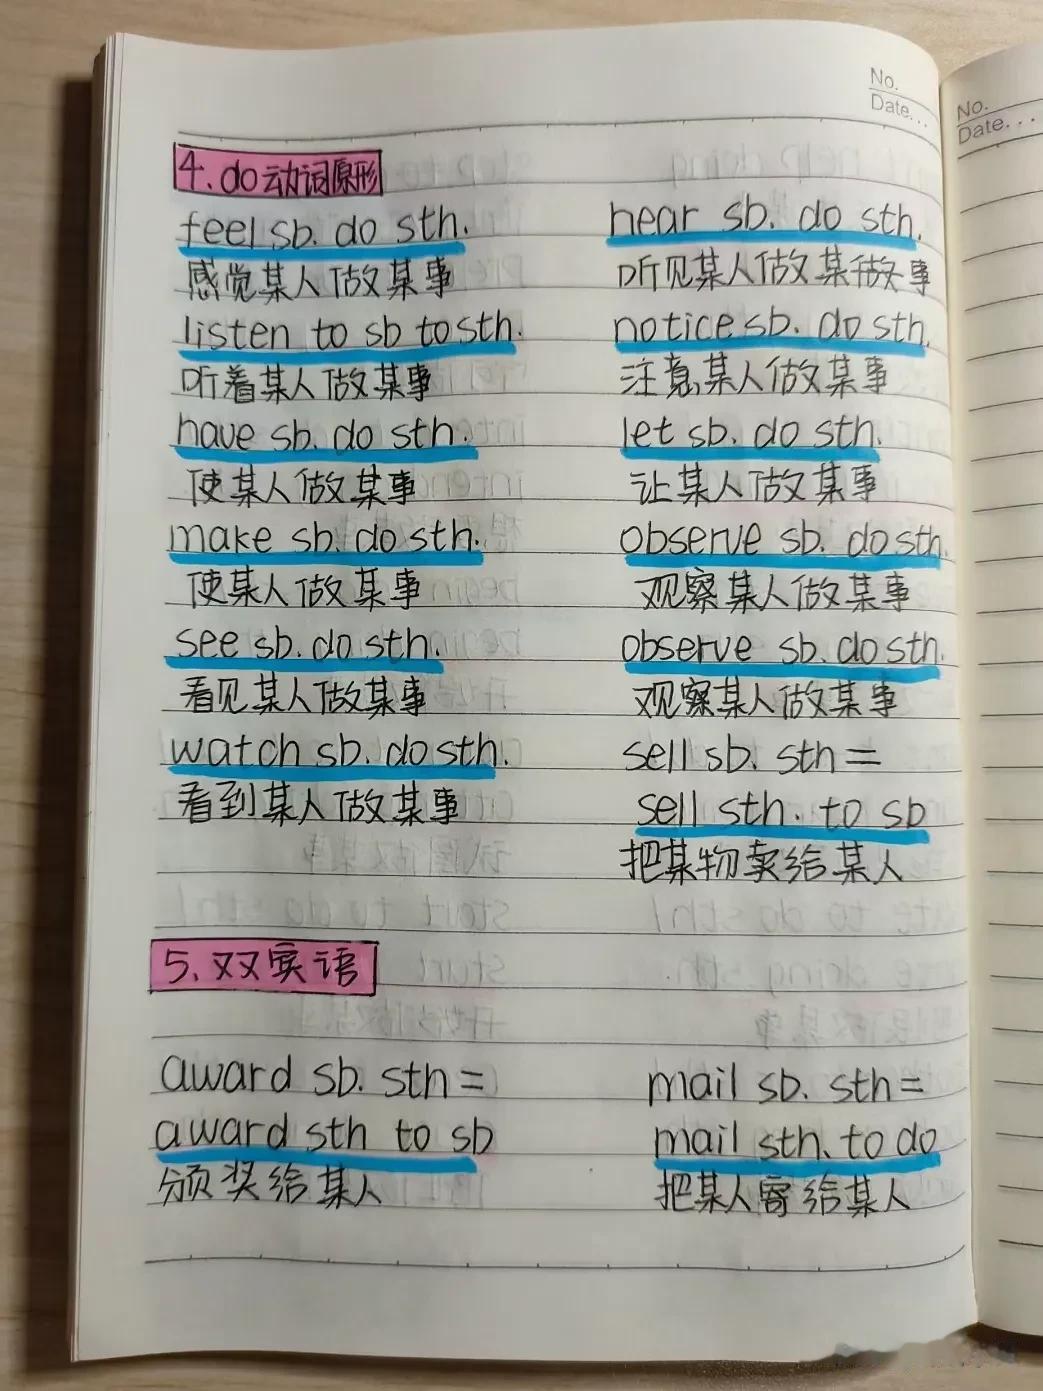 No.
Date...
No.
Date...
4. do动词原形
feel sb. do sth.
感觉某人做某事
listen to sb to sth.
听着某人做某事
have sb. do sth.
使某人做某事
make sb. do sth.
使某人做某事
see sb. do sth.
看见某人做某事
watch sb. do sth.
看到某人做某事
hear sb. do sth.
听见某人做某做事
notice sb. do sth.
注意某人做某事
let sb. do sth.
让某人做某事
observe sb. do sth.
观察某人做某事
observe sb. do sth.
观察某人做某事
sell sb. sth =
sell sth. to sb
把某物卖给某人
5. 双宾语
award sb. sth =
award sth to sb
颁奖给某人
mail sb. sth =
mail sth. to do
把某人寄给某人